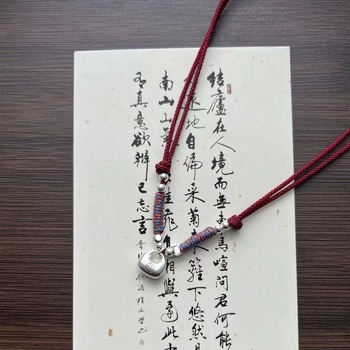 結廬在人境而無馬喧問君何能
遠地自偏采菊籬下悠然見
南山山佳飛相與還此中
有真意欲辨已忘言